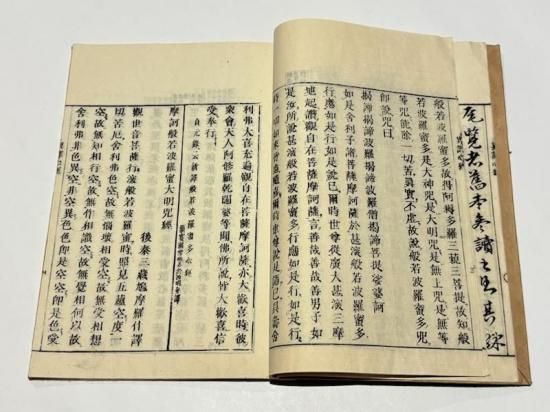 般若波羅蜜多故得阿耨多羅三藐三菩提故知般
若波羅蜜多是大神咒是大明咒是無上咒是無等
等咒能除一切苦眞實不虛故說般若波羅蜜多咒
卽說咒曰
揭諦揭諦波羅揭諦波羅僧揭諦菩提娑婆訶
如是舍利子諸菩薩摩訶薩於甚深般若波羅蜜多
行應如是行如是說已爾時世尊從廣大甚深三摩
地起讚觀自在菩薩摩訶薩言善哉善哉善男子如
是如汝所說甚深般若波羅蜜多行應如是行如是行
時一切如來皆悉隨喜爾時世尊說是語已具壽舍
利弗大喜充遍觀自在菩薩摩訶薩亦大歡喜時彼
衆會天人阿修羅乾闥婆等聞佛所說皆大歡喜信
受奉行
般若波羅蜜多心經
摩訶般若波羅蜜大明咒經
後秦三藏鳩摩羅什譯
觀世音菩薩行深般若波羅蜜時照見五蘊空度一
切苦厄舍利弗色空故無惱壞相受空故無受相想
空故無知相行空故無作相識空故無覺相何以故
舍利弗非色異空非空異色色卽是空空卽是色受